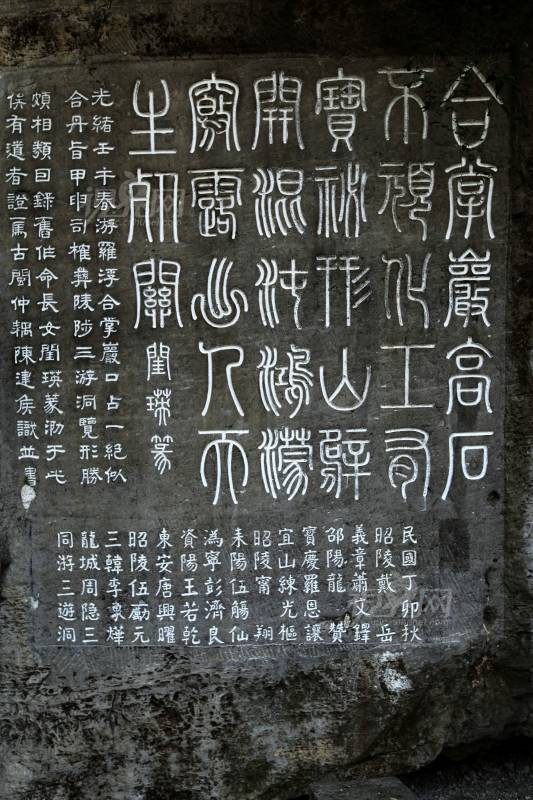 合掌巖高石
不頑化工有
寶祕形山擘
開混沌鴻濛
竅露出人天
生死關 閨瑛篆
光緒壬午春游羅浮合掌巖口占一絕似
合丹旨甲申司榷彝陵陟三游洞覽形勝
頗相類因錄舊作命長女閨瑛篆泐于此
俟有道者證焉古閩仲耦陳建侯識並書
民國丁卯秋
昭陵戴岳
義章蕭文鐸
邵陽龍贊
寶慶羅恩讓
宜山練光樞
昭陵甯翔
耒陽伍觴仙
溈寧彭濟良
資陽王若乾
東安唐興曜
昭陵伍勵元
三韓李栗燁
龍城周隐三
同游三遊洞